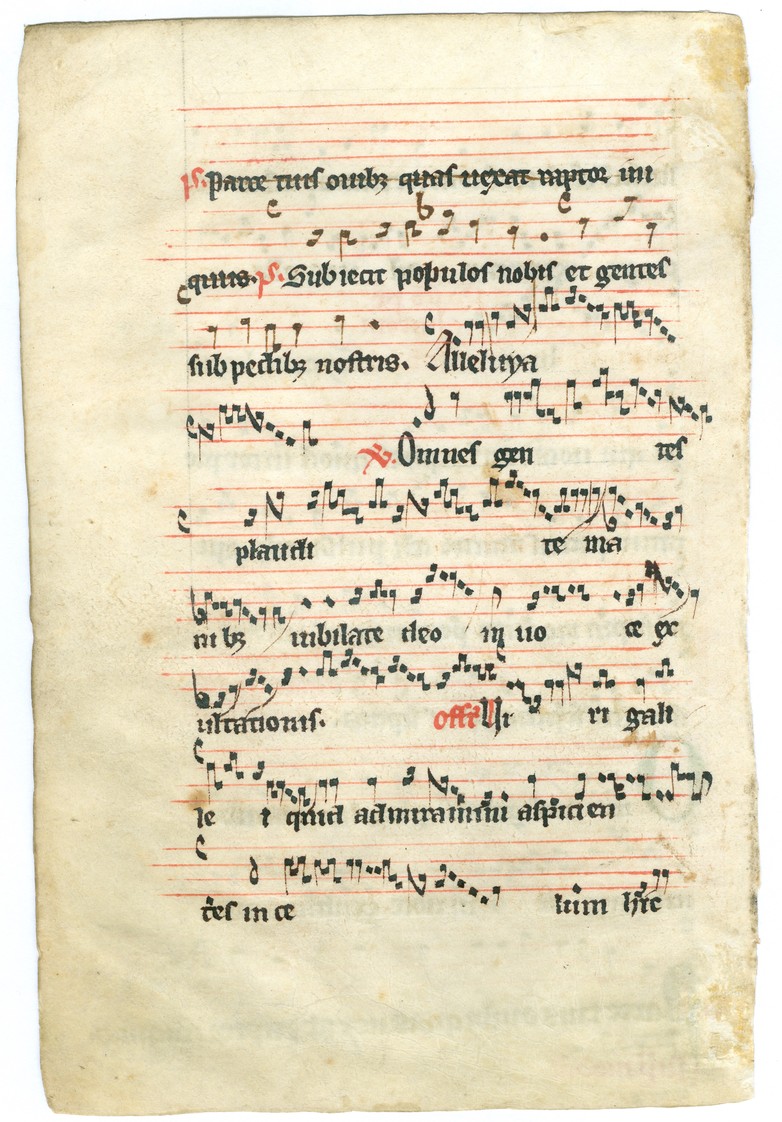 ps. Parce tuis ouibꝫ quas uexat raptor ini
quus. ps. Subiecit populos nobis et gentes
sub pedibꝫ nostris. Alleluya
℣. Omnes gen tes
plaudi te ma
nibꝫ iubilate deo in uo ce ex
ultationis. offr̄ Ui ri gali
le i quid admiramini aspicien
tes in ce lum hic